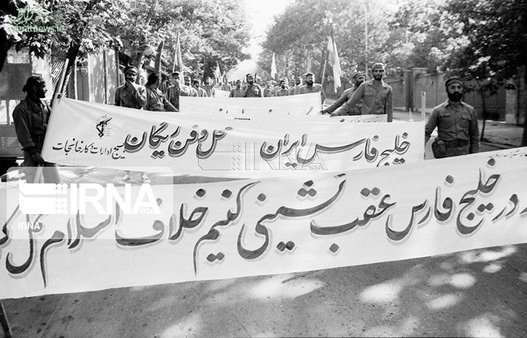 خلیج فارس ایران محل دفن ریگان
بسیج ادارات و کارخانجات
در خلیج فارس عقب نشینی کنیم خلاف اسلام عمل
IRNA
IRNA
IRNA